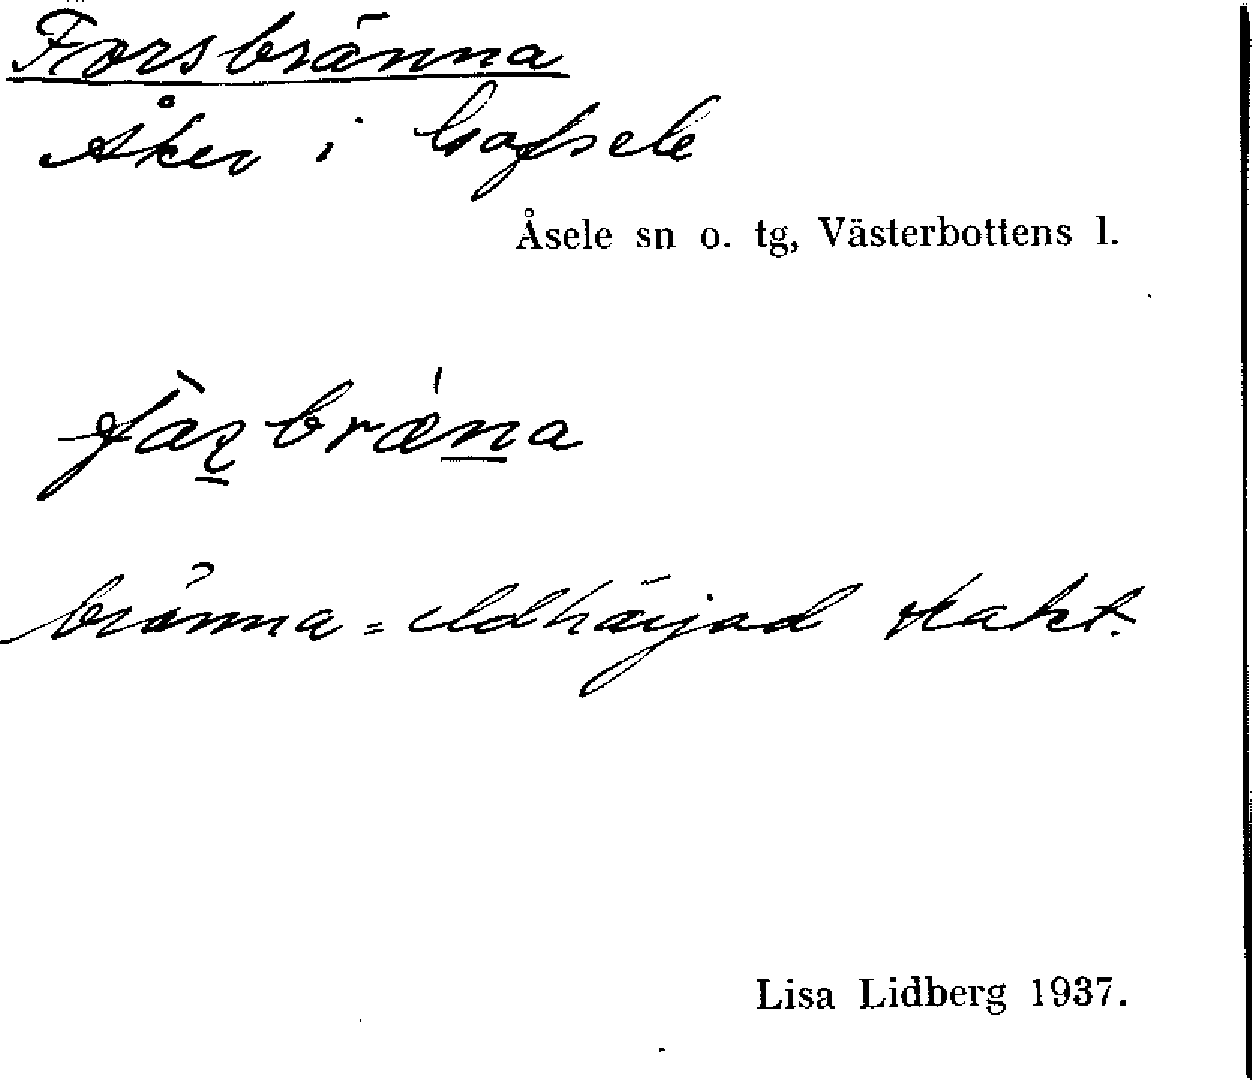 Forsbränna
Åker i Gafsele
Åsele sn o. tg, Västerbottens l.
bränna = eldhärjad trakt.
Lisa Lidberg 1937.